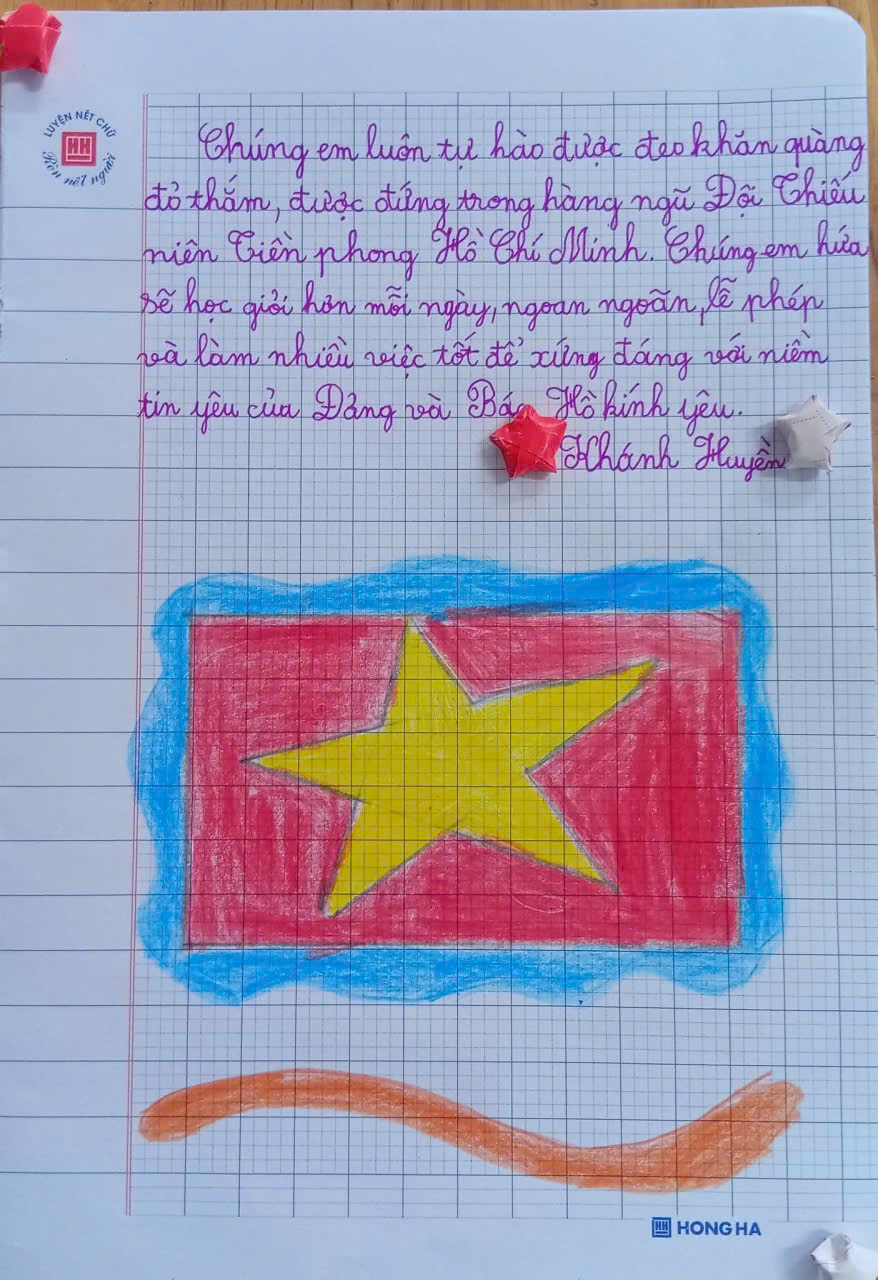 LUYỆN NÉT CHỮ
HH
Rèn nết người
Chúng em luôn tự hào được đeo khăn quàng
đỏ thắm, được đứng trong hàng ngũ Đội Thiếu
niên Tiền phong Hồ Chí Minh. Chúng em hứa
sẽ học giỏi hơn mỗi ngày, ngoan ngoãn, lễ phép
và làm nhiều việc tốt để xứng đáng với niềm
tin yêu của Đảng và Bác Hồ kính yêu.
Khánh Huyền
HH HONG HA